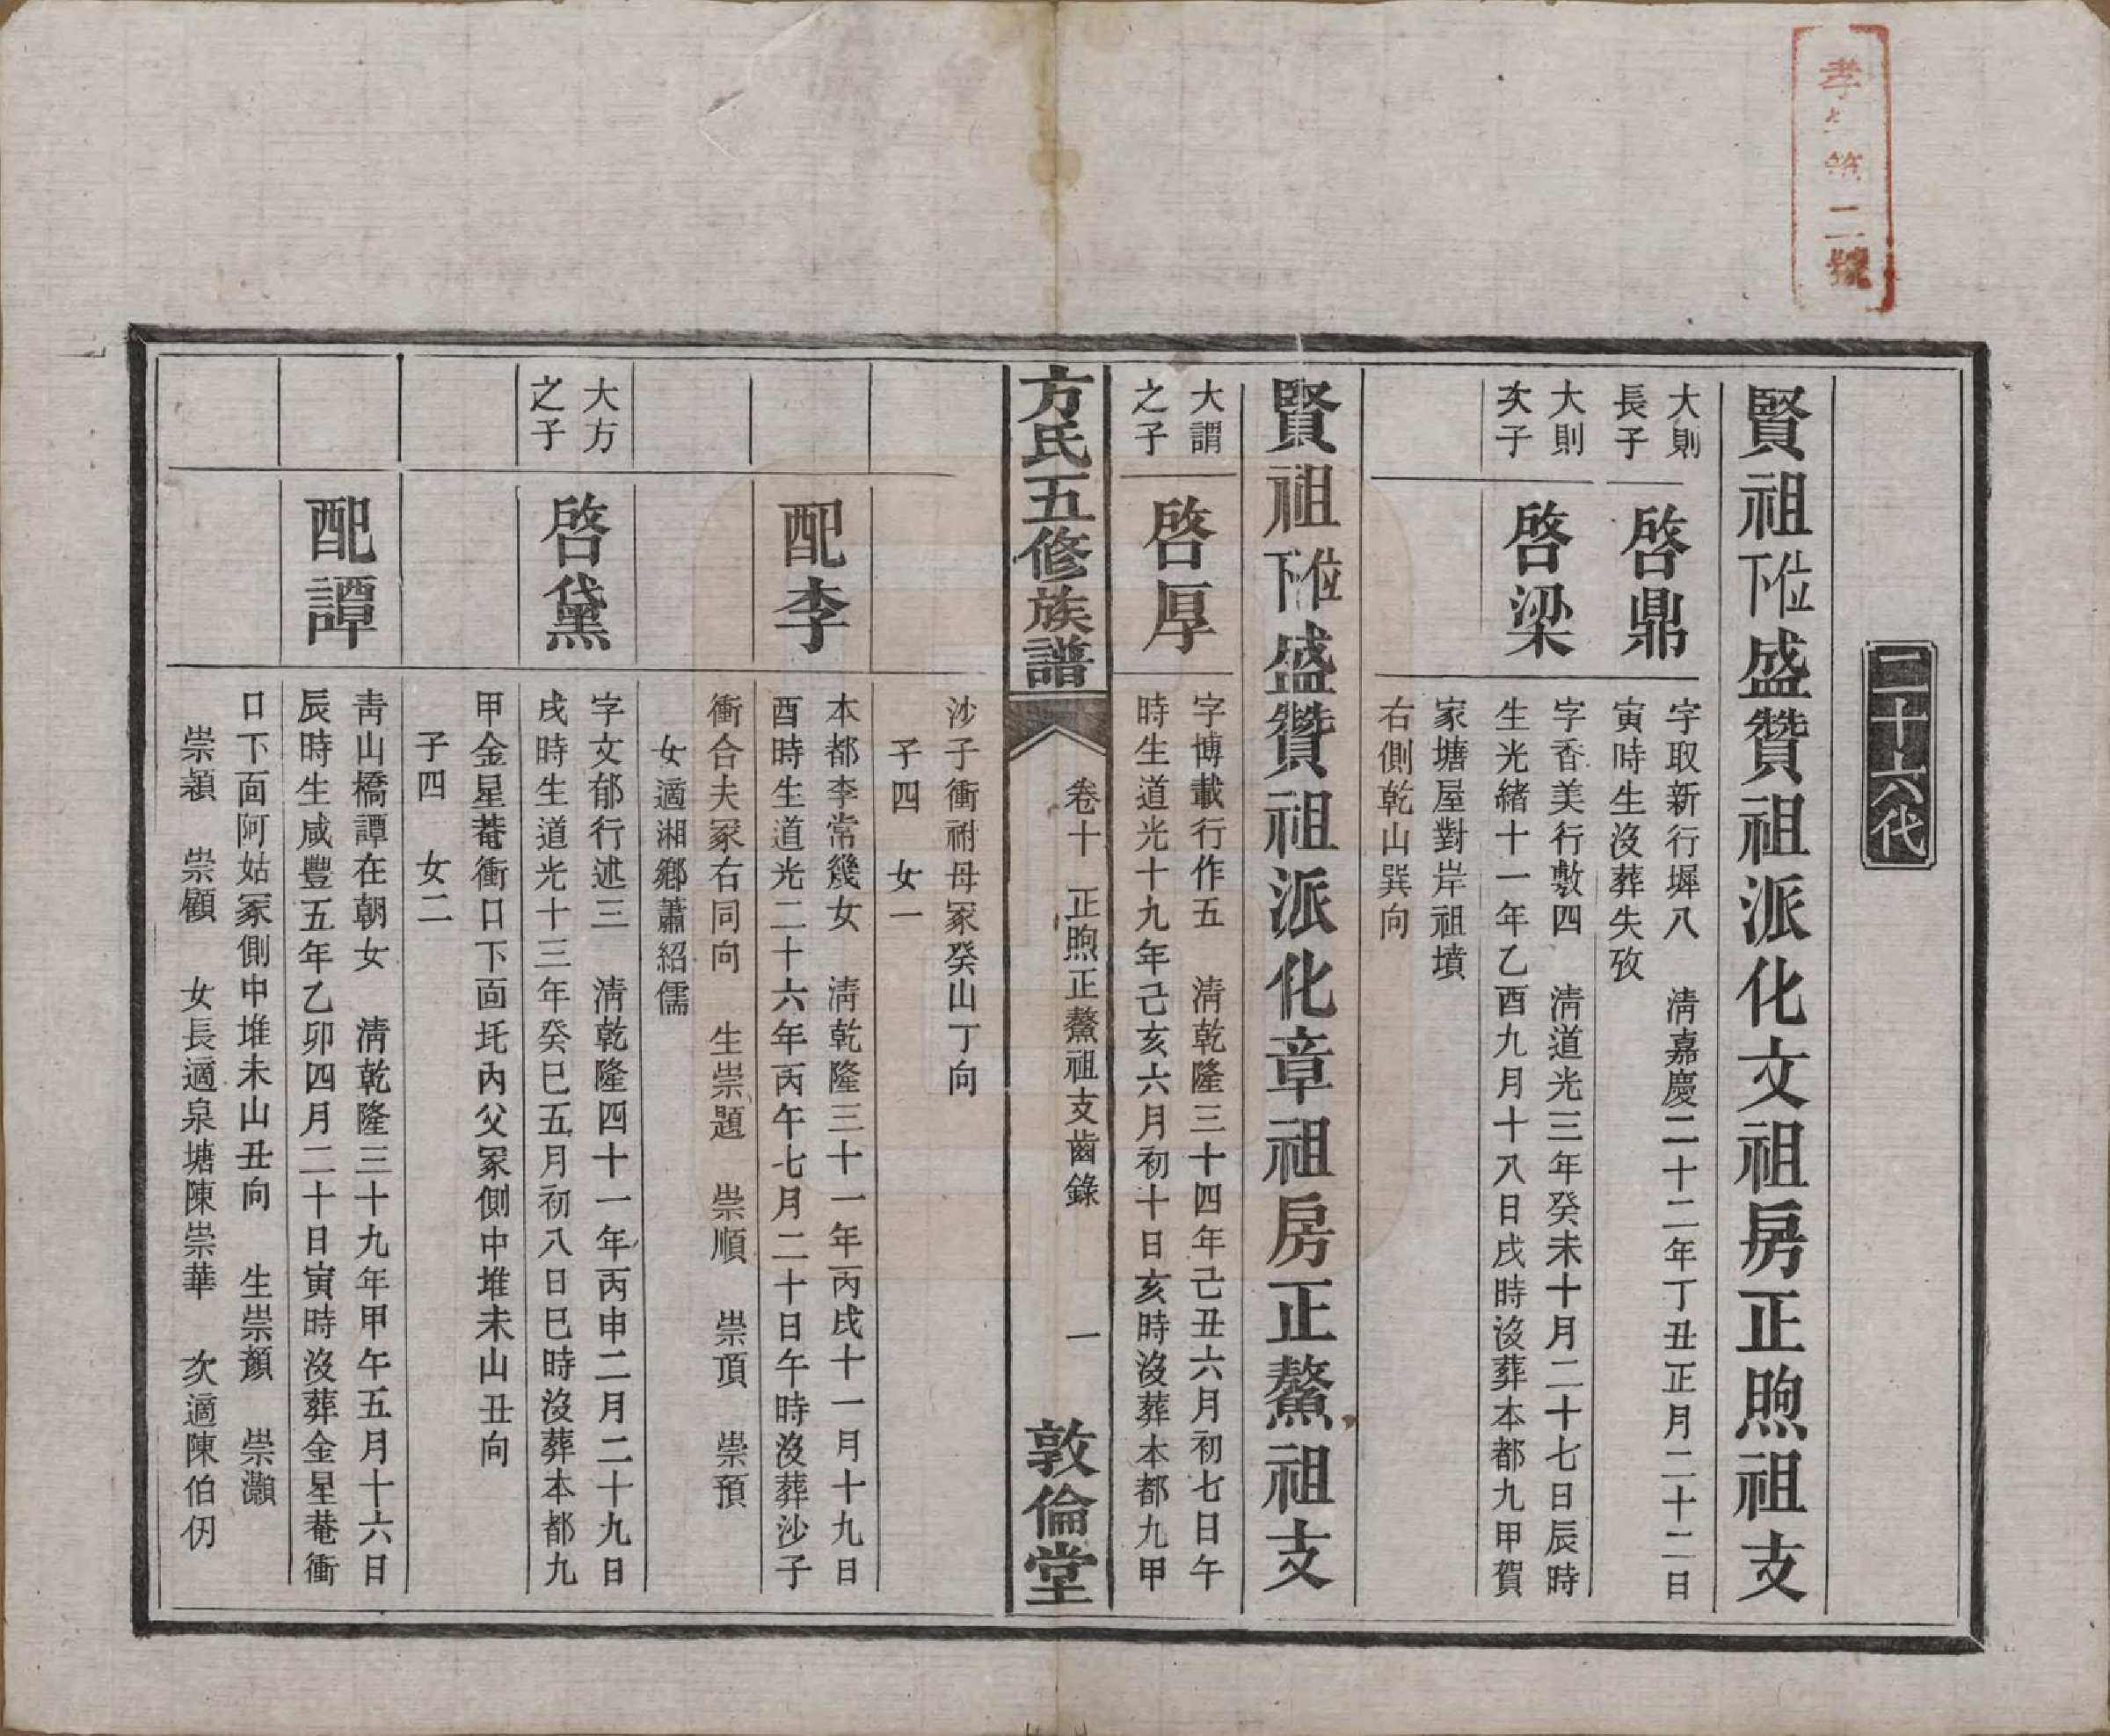 二十六代
賢祖位下盛贊祖派化文祖房正煦祖支
大則
長子
啓鼎
字取新行墀八　淸嘉慶二十二年丁丑正月二十二日
寅時生沒葬失攷
大則
次子
啓梁
字香美行敷四　淸道光三年癸未十月二十七日辰時
生光緒十一年乙酉九月十八日戌時沒葬本都九甲賀
家塘屋對岸祖墳
右側乾山巽向
賢祖位下盛贊祖派化章祖房正鰲祖支
大謂
之子
啓厚
字博載行作五　淸乾隆三十四年己丑六月初七日午
時生道光十九年己亥六月初十日亥時沒葬本都九甲
方氏五修族譜
卷十　正煦正鰲祖支齒錄
一
敦倫堂
沙子衝祔母冢癸山丁向
子四　女一
配李
本都李常幾女　淸乾隆三十一年丙戌十一月十九日
酉時生道光二十六年丙午七月二十日午時沒葬沙子
衝合夫冢右同向　生崇題　崇順　崇頂　崇預
女適湘鄉蕭紹儒
大方
之子
啓黛
字文郁行述三　淸乾隆四十一年丙申二月二十九日
戌時生道光十三年癸巳五月初八日巳時沒葬本都九
甲金星菴衝口下面坉內父冢側中堆未山丑向
子四　女二
配譚
靑山橋譚在朝女　淸乾隆三十九年甲午五月十六日
辰時生咸豐五年乙卯四月二十日寅時沒葬金星菴衝
口下面阿姑冢側中堆未山丑向　生崇顏　崇灝
崇穎　崇顧　女長適泉塘陳崇華　次適陳伯仞
第二號